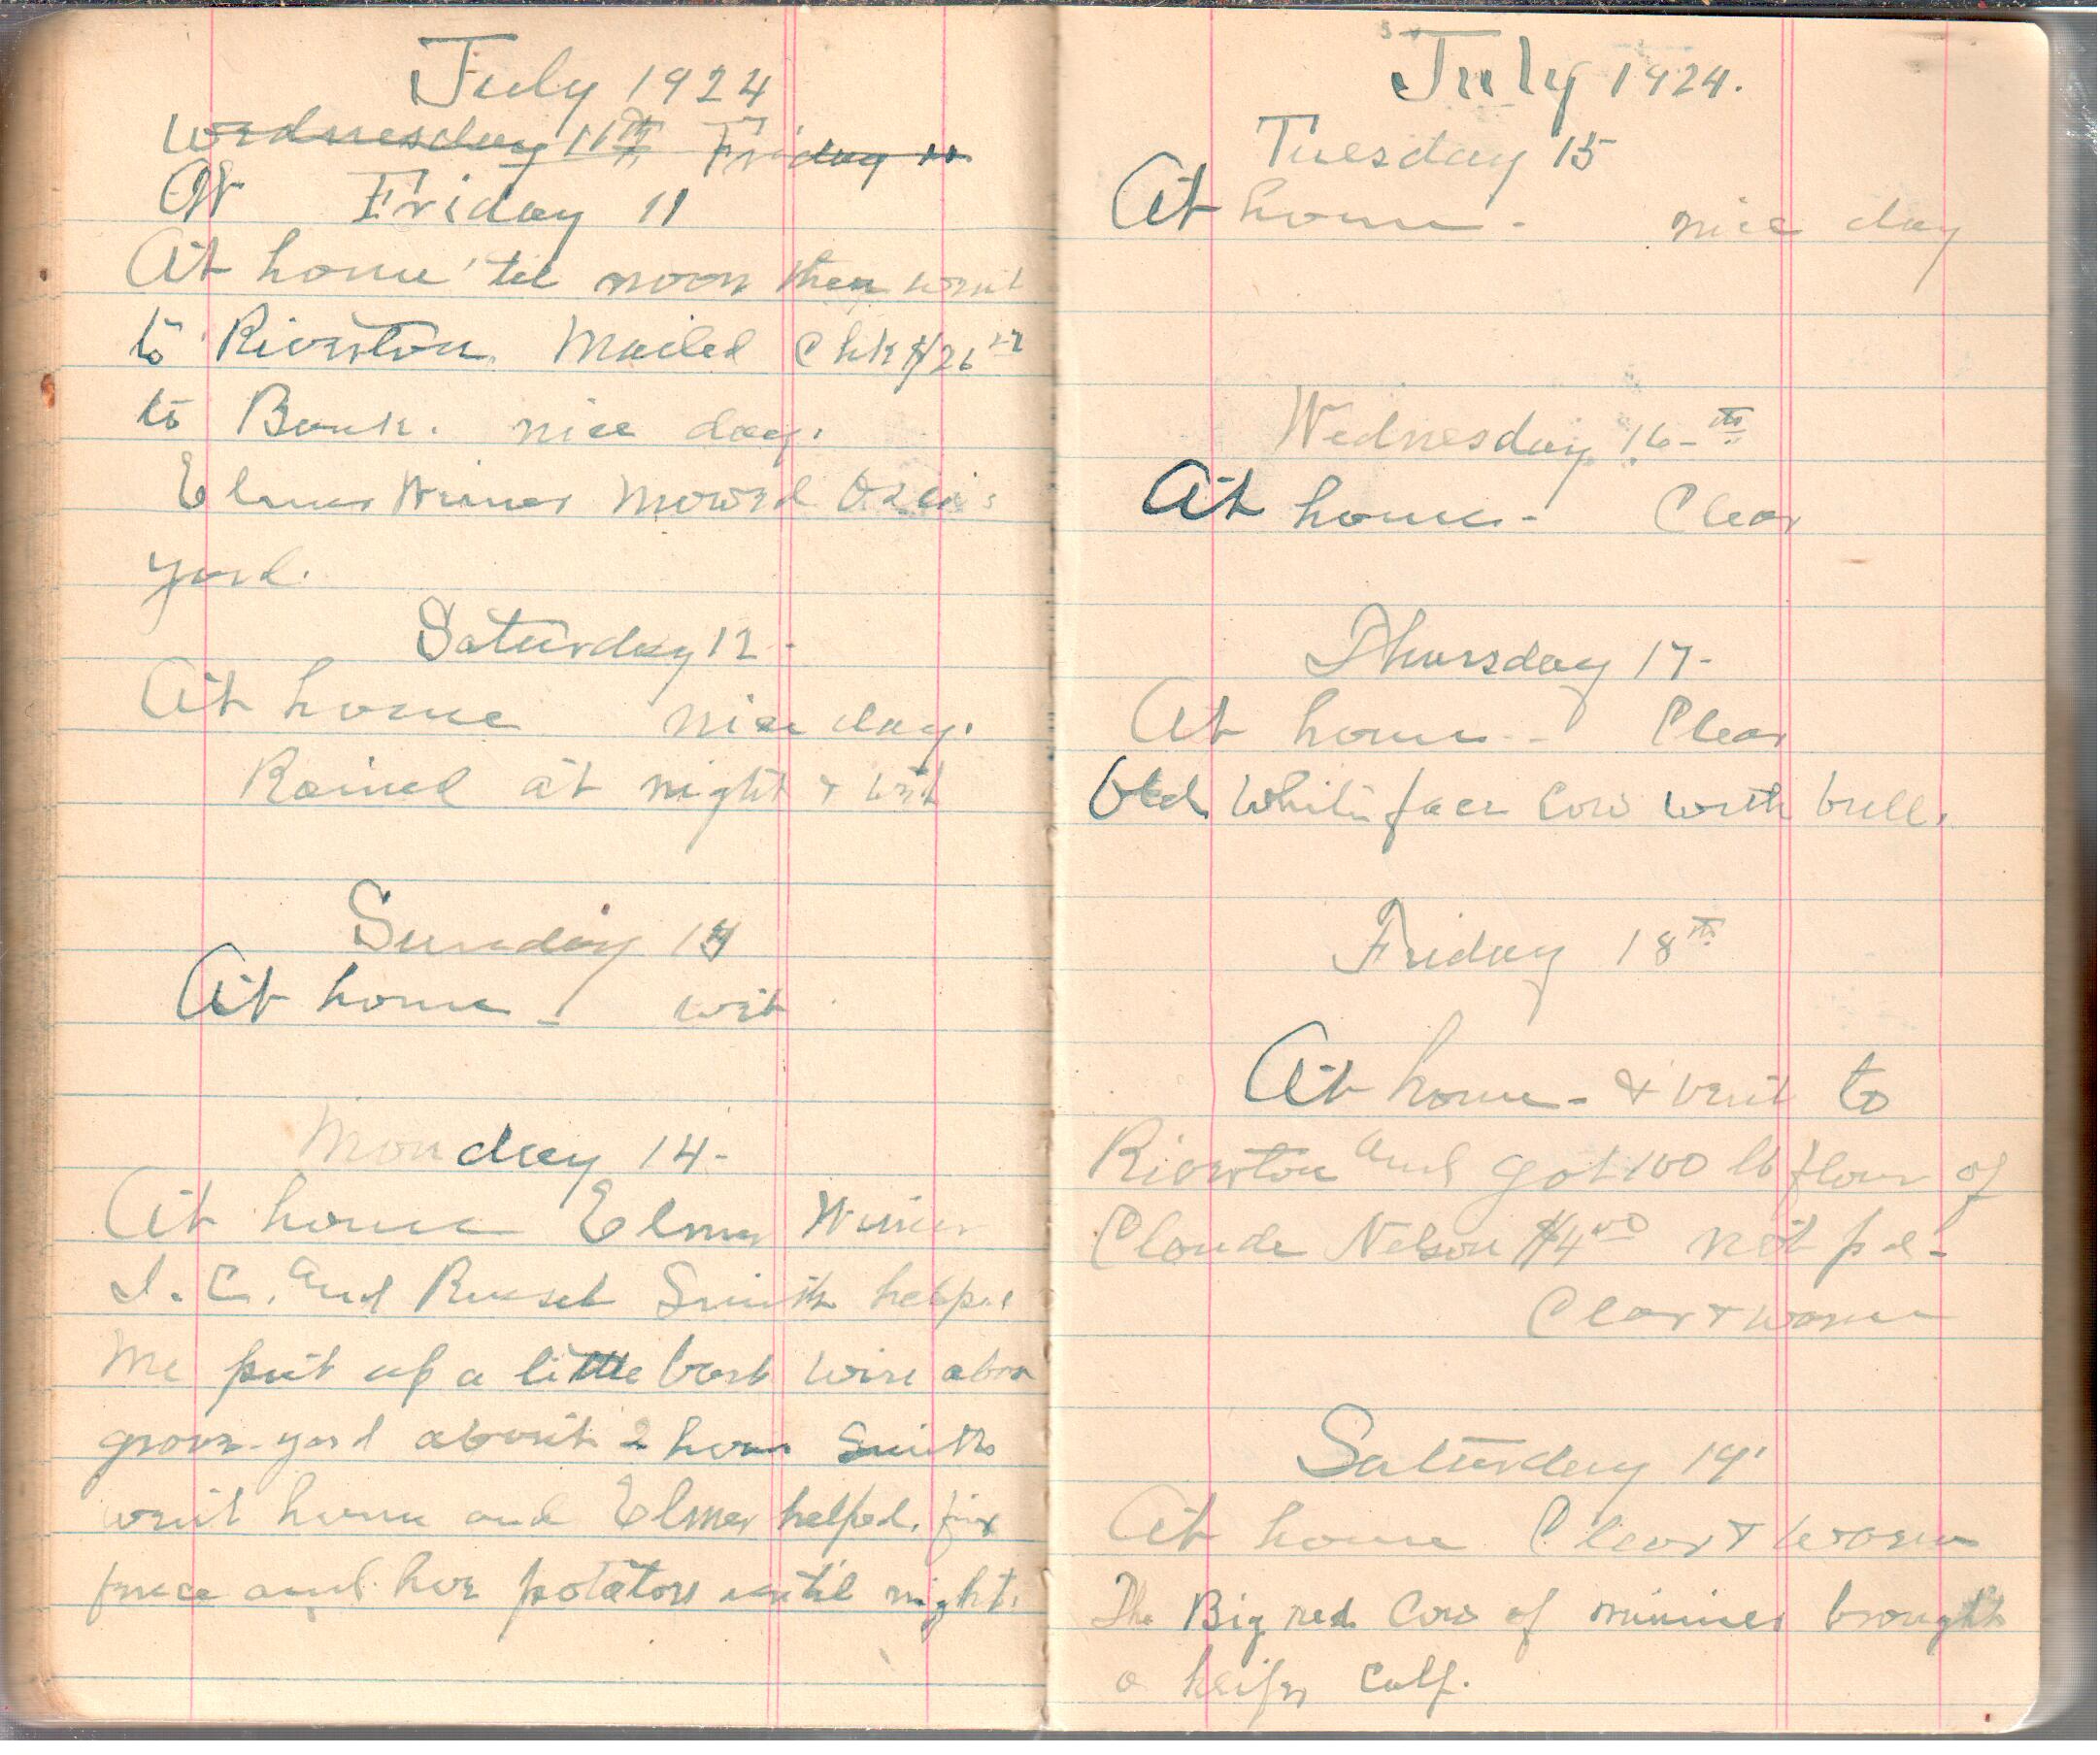 July 1924
Wednesday 11th Friday 11
At Friday 11
At home 'til noon then went
to Riverton. Mailed Chk $26
to Bank. nice day.
Elmer Winer Mowed
yard.
Saturday 12-
At home nice day.
Rained at night & wet
Sunday 13
At home - wet
Monday 14-
At home Elmer Winer
I. C. and Russel Smith helped
me put up a little barb wire above
grave-yard about 2 hours Smiths
went home and Elmer helped fix
fence and hoe potatoes until night.
July 1924.
Tuesday 15
At home - nice day
Wednesday 16-th
At home - Clear
Thursday 17-
At home - Clear
Old White face Cow with bull.
Friday 18th
At home - & went to
Riverton and got 100 lb flour of
Claude Nelson $4.00 not pd-
Clear & warm
Saturday 19
At home Clear & warm
The Big red Cow of brought
a heifer Calf.